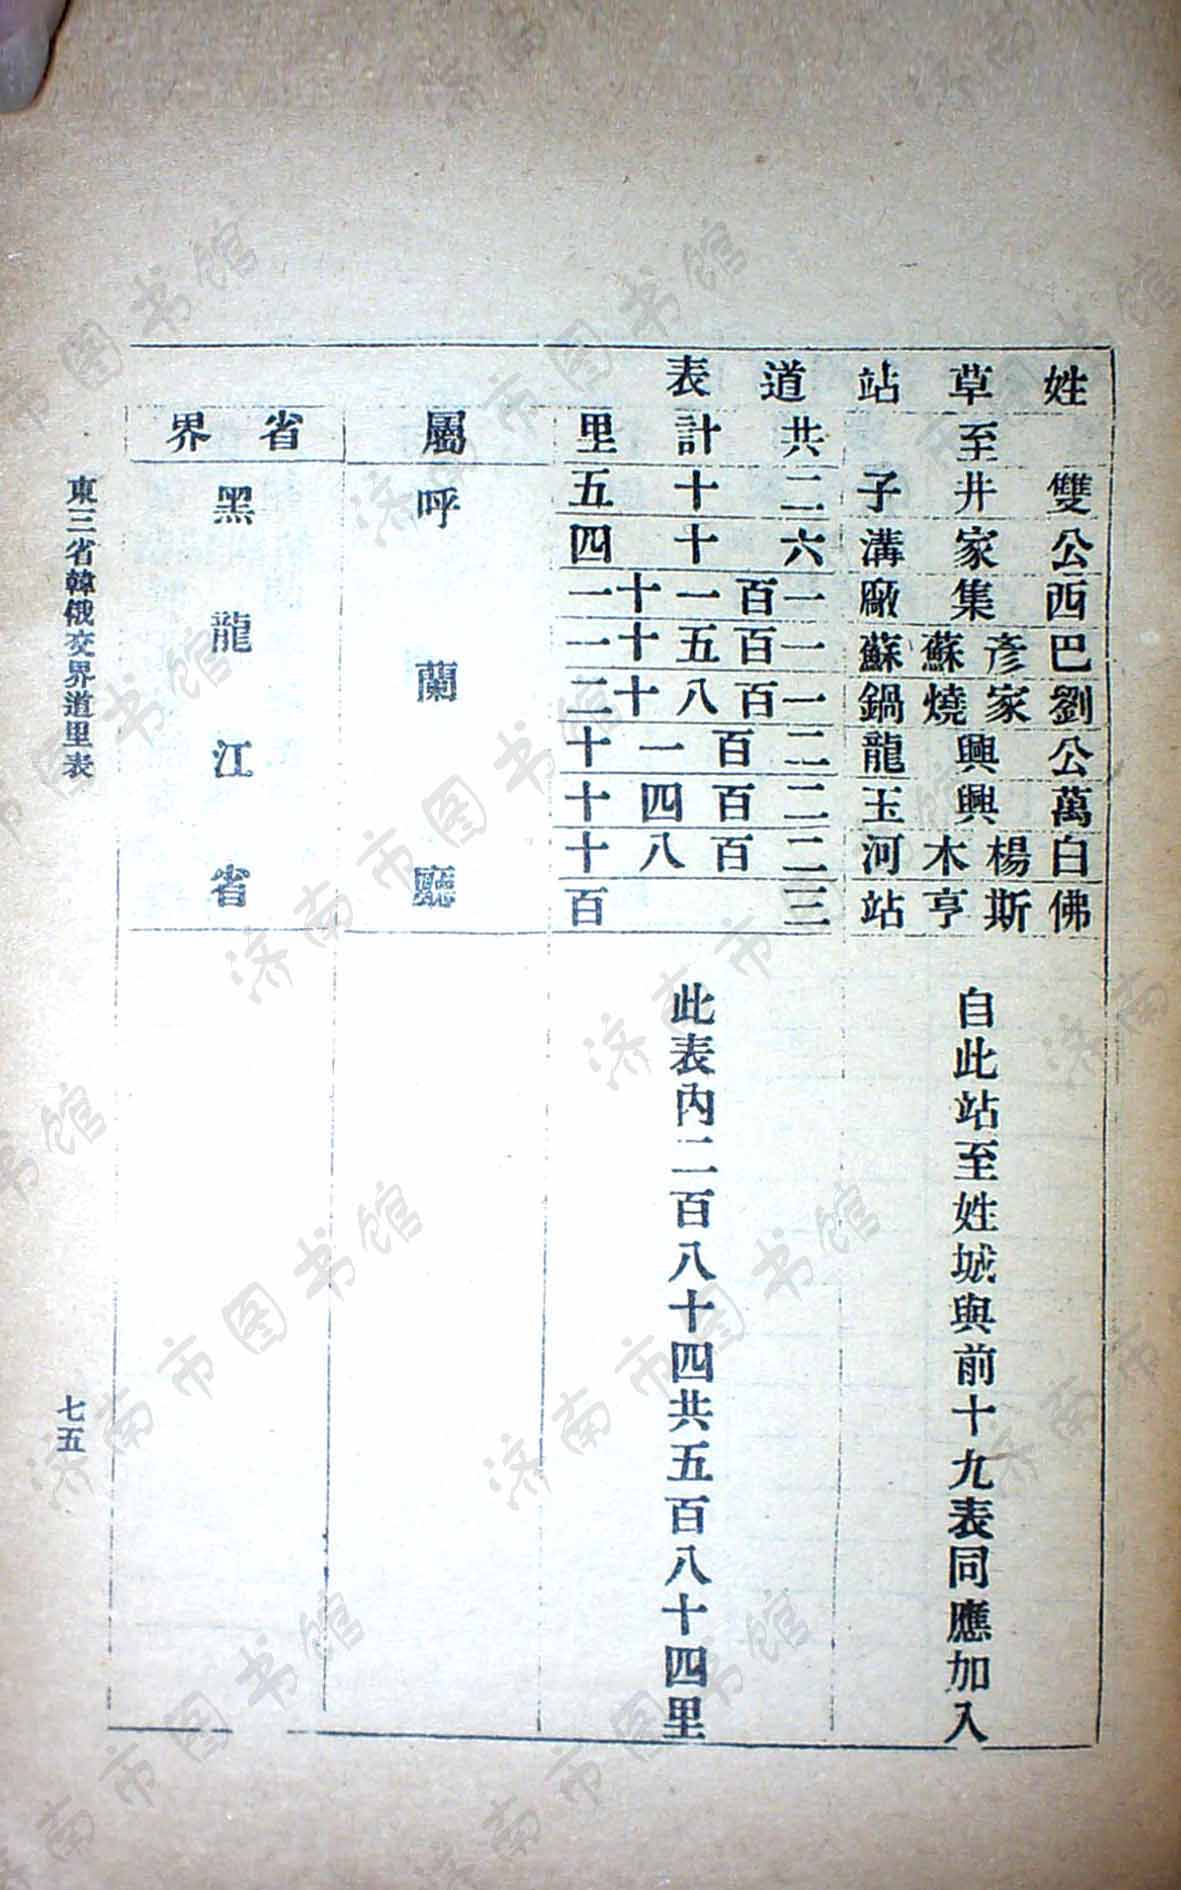 姓草站道表
至 共計里 屬 省界
雙井子 二十五
公家溝 六十四
西集廠 一百一十一
巴彥蘇蘇 一百五十一
劉家燒鍋 一百八十二
公興龍 二百一十
萬興玉 二百四十
白楊木河 二百八十
佛斯亨站 三百
呼蘭廳
黑龍江省
自此站至姓城與前十九表同應加入
此表內二百八十四共五百八十四里
東三省韓俄交界道里表
七五
济南市图书馆